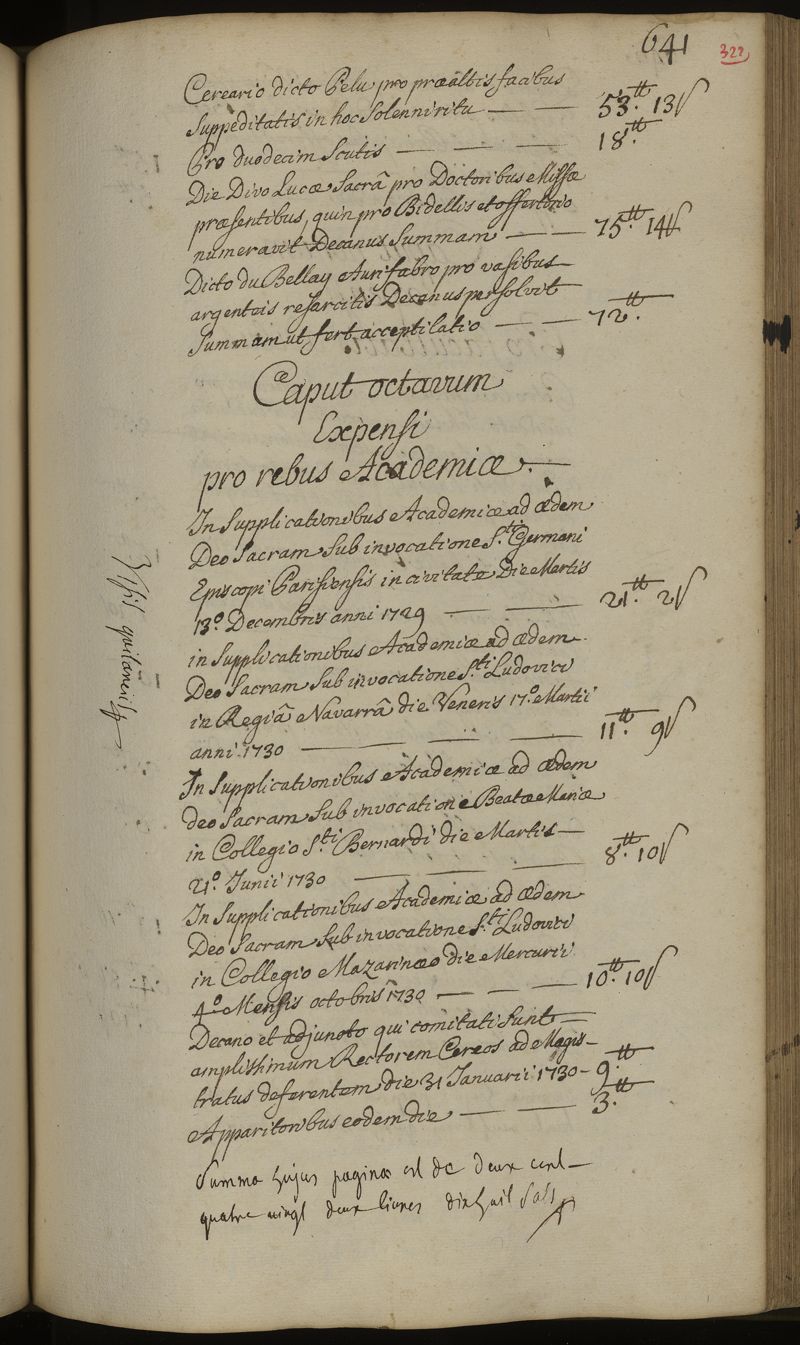 641 322
Cereario dicto Pelu pro præaltis facibus
Suppeditatis in hoc Solenni ritu — — 53.tt 13ſ
Pro duodecim Scutis — — — 18.tt
Die Divo Lucæ Sacrâ pro Doctoribus Missæ
præsentibus, quin pro Bidellis et offertorio
numeravit Decanus Summam — — 75.tt 14ſ
Dicto du Bellay Aurifabro pro vasibus
argenteis resarcitis Decanus persolvit
Summam ut fert acceptilatio — — 72.tt
Caput octavum
Expensi
pro rebus Academiæ. —
In Supplicationibus Academiæ ad ædem
Deo Sacram Sub invocatione S.ti Germani
Episcopi Parisiensis in civitate Die Martis
13.º Decembris anni 1729 — — 21.tt 2ſ
in Supplicationibus Academiæ ad ædem
Deo Sacram Sub invocatione S.ti Ludovici
in Regiâ Navarrâ die Veneris 17.º Martii
anni 1730 — — — 11.tt 9ſ
In Supplicationibus Academiæ ad ædem
deo Sacram Sub invocatione Beatæ Mariæ
in Collegio S.ti Bernardi die Martis —
21.º Junii 1730 — — — 8.tt 10ſ
In Supplicationibus Academiæ ad ædem
Deo Sacram Sub invocatione S.ti Ludovici
in Collegio Mazarinæo die Mercurii
4.º Mensis octobris 1730 — — — 10.tt 10ſ
Decano et adjuncto qui comitati Sunt —
amplissimum Rectorem Cereos ad Magis-
tratus deferentem die 31 Januarii 1730 - 9.tt
Apparitoribus eodem die — — 3.tt
Summa hujus paginæ est de deux cent —
quatre vingt deux livres dixhuit Sols